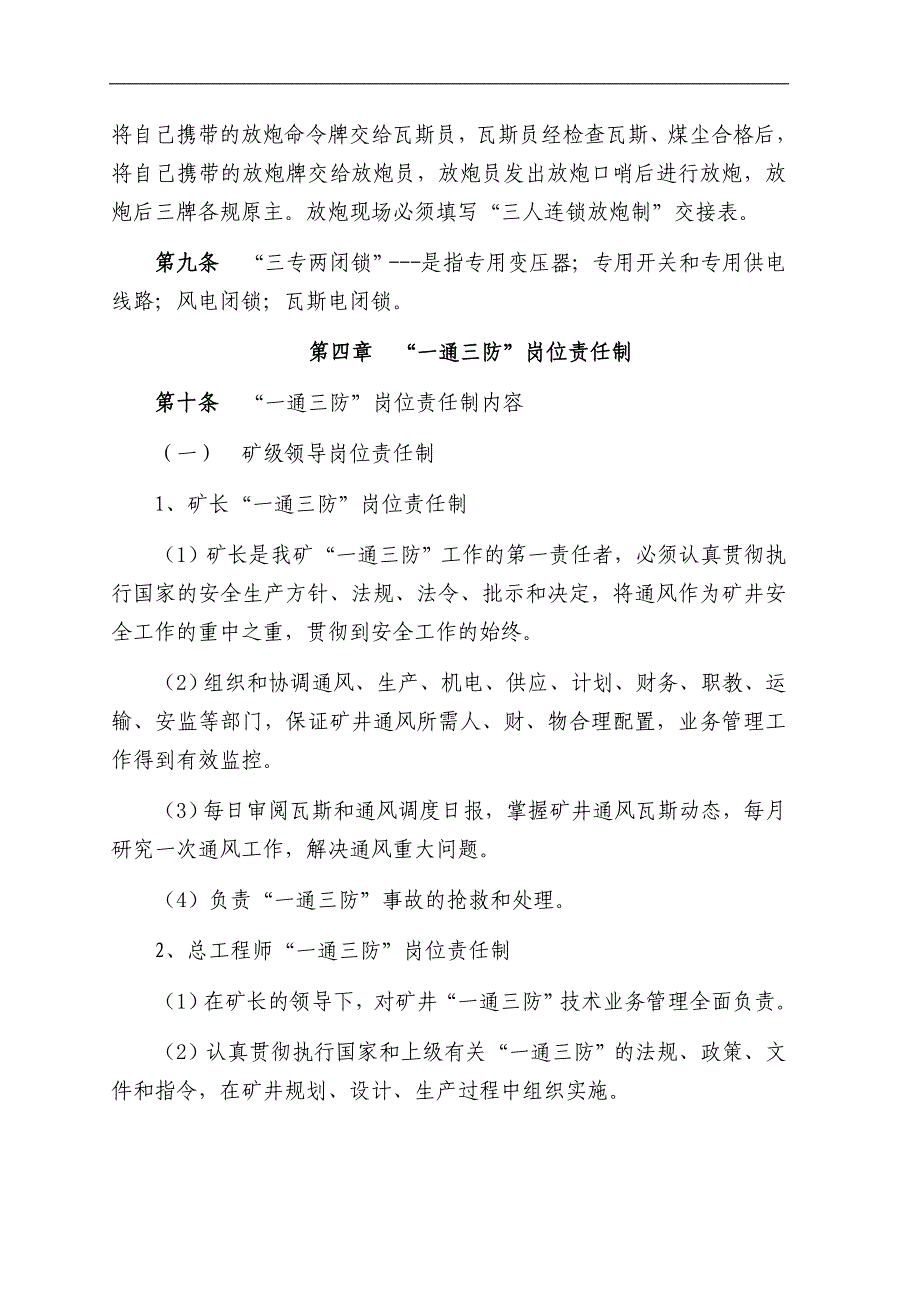 将自己携带的放炮命令牌交给瓦斯员，瓦斯员经检查瓦斯、煤尘合格后，
将自己携带的放炮牌交给放炮员，放炮员发出放炮口哨后进行放炮，放
炮后三牌各规原主。放炮现场必须填写“三人连锁放炮制”交接表。
第九条　“三专两闭锁”---是指专用变压器；专用开关和专用供电
线路；风电闭锁；瓦斯电闭锁。
第四章　“一通三防”岗位责任制
第十条　“一通三防”岗位责任制内容
（一）　矿级领导岗位责任制
1、矿长“一通三防”岗位责任制
（1）矿长是我矿“一通三防”工作的第一责任者，必须认真贯彻执
行国家的安全生产方针、法规、法令、批示和决定，将通风作为矿井安
全工作的重中之重，贯彻到安全工作的始终。
（2）组织和协调通风、生产、机电、供应、计划、财务、职教、运
输、安监等部门，保证矿井通风所需人、财、物合理配置，业务管理工
作得到有效监控。
（3）每日审阅瓦斯和通风调度日报，掌握矿井通风瓦斯动态，每月
研究一次通风工作，解决通风重大问题。
（4）负责“一通三防”事故的抢救和处理。
2、总工程师“一通三防”岗位责任制
（1）在矿长的领导下，对矿井“一通三防”技术业务管理全面负责。
（2）认真贯彻执行国家和上级有关“一通三防”的法规、政策、文
件和指令，在矿井规划、设计、生产过程中组织实施。